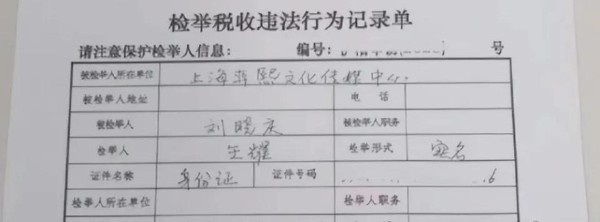 检举税收违法行为记录单
请注意保护检举人信息： 编号：
被检举人所在单位 上海 熙文化传媒中心
被检举人地址 电 话
被检举人 刘晓庆 被检举人职务
检举人 王耀 检举形式 实名
证件名称 身份证 证件号码 6
检举人所在单位 检举人职务